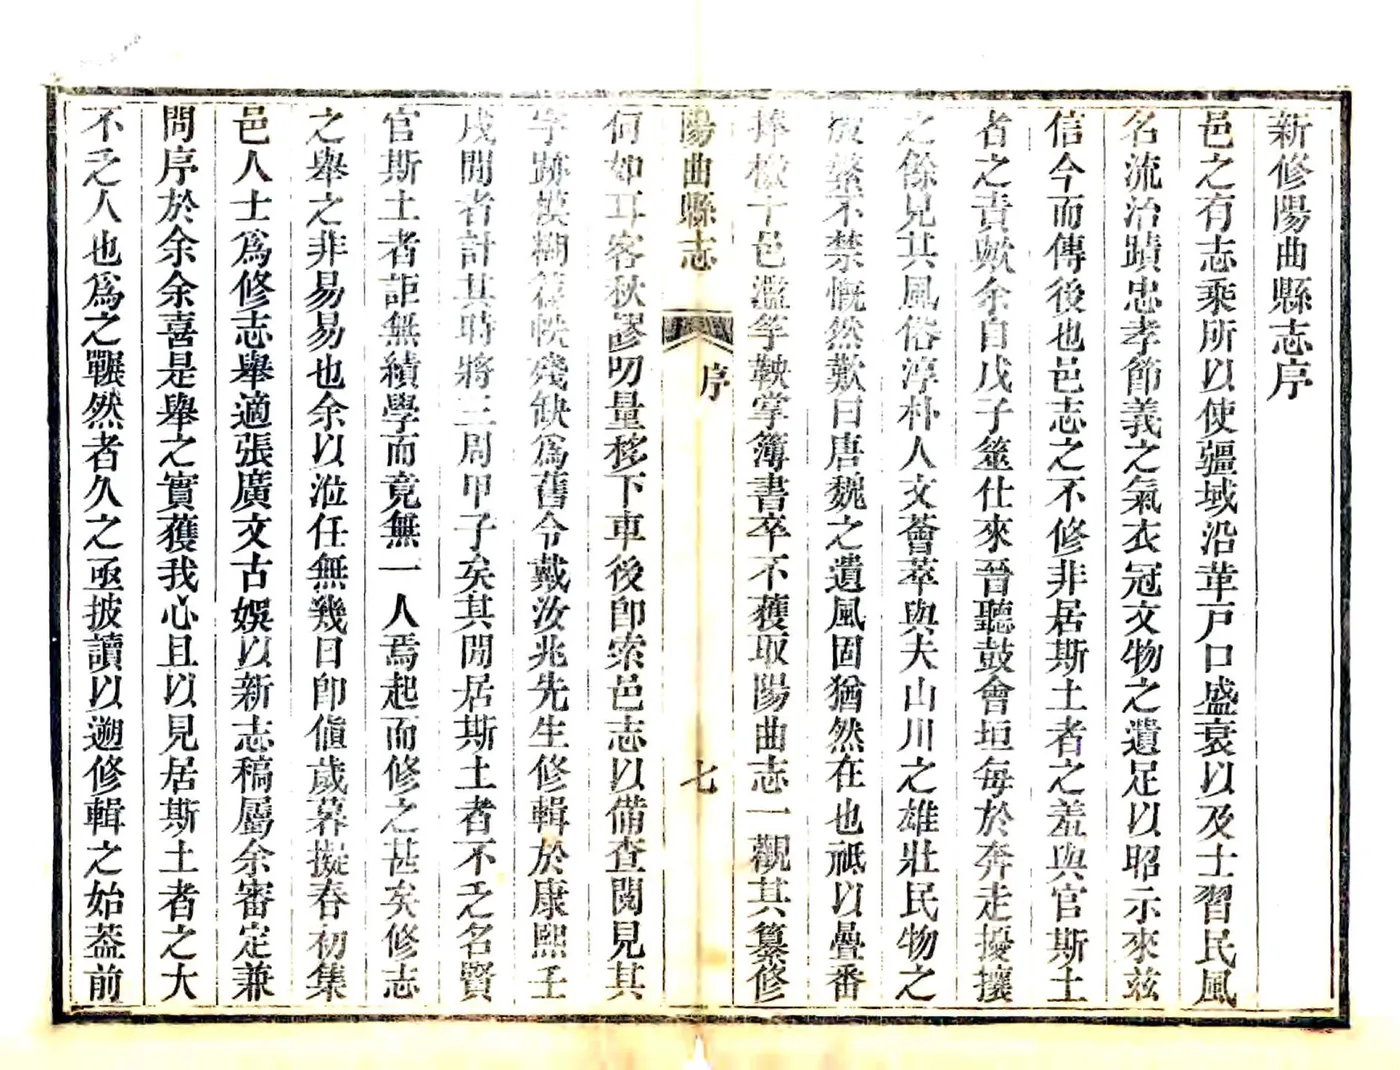 新修陽曲縣志序
邑之有志乘所以使疆域沿革戸口盛衰以及士習民風
名流治蹟忠孝節義之氣衣冠文物之遺足以昭示來茲
信今而傳後也邑志之不修非居斯土者之羞與官斯土
者之責歟余自戊子筮仕來晉聽鼓會垣每於奔走擾攘
之餘見其風俗淳朴人文薈萃與夫山川之雄壯民物之
殷繁不禁慨然歎曰唐魏之遺風固猶然在也祗以疊番
捧檄十邑濫竽鞅掌簿書卒不獲取陽曲志一觀其纂修
陽曲縣志
序
七
何如耳客秋謬叨量移下車後卽索邑志以備查閱見其
字跡模糊篇帙殘缺爲舊令戴汝兆先生修輯於康熙壬
戌閒者計其時將三周甲子矣其閒居斯土者不乏名賢
官斯土者詎無績學而竟無一人焉起而修之甚矣修志
之舉之非易易也余以涖任無幾日卽値歲暮擬春初集
邑人士爲修志舉適張廣文古娛以新志稿屬余審定兼
問序於余余喜是舉之實獲我心且以見居斯土者之大
不乏人也爲之囅然者久之亟披讀以遡修輯之始葢前